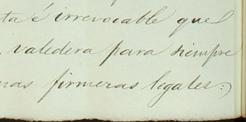 ta é irrevocable que
valedera para siempre
nas firmezas legales: